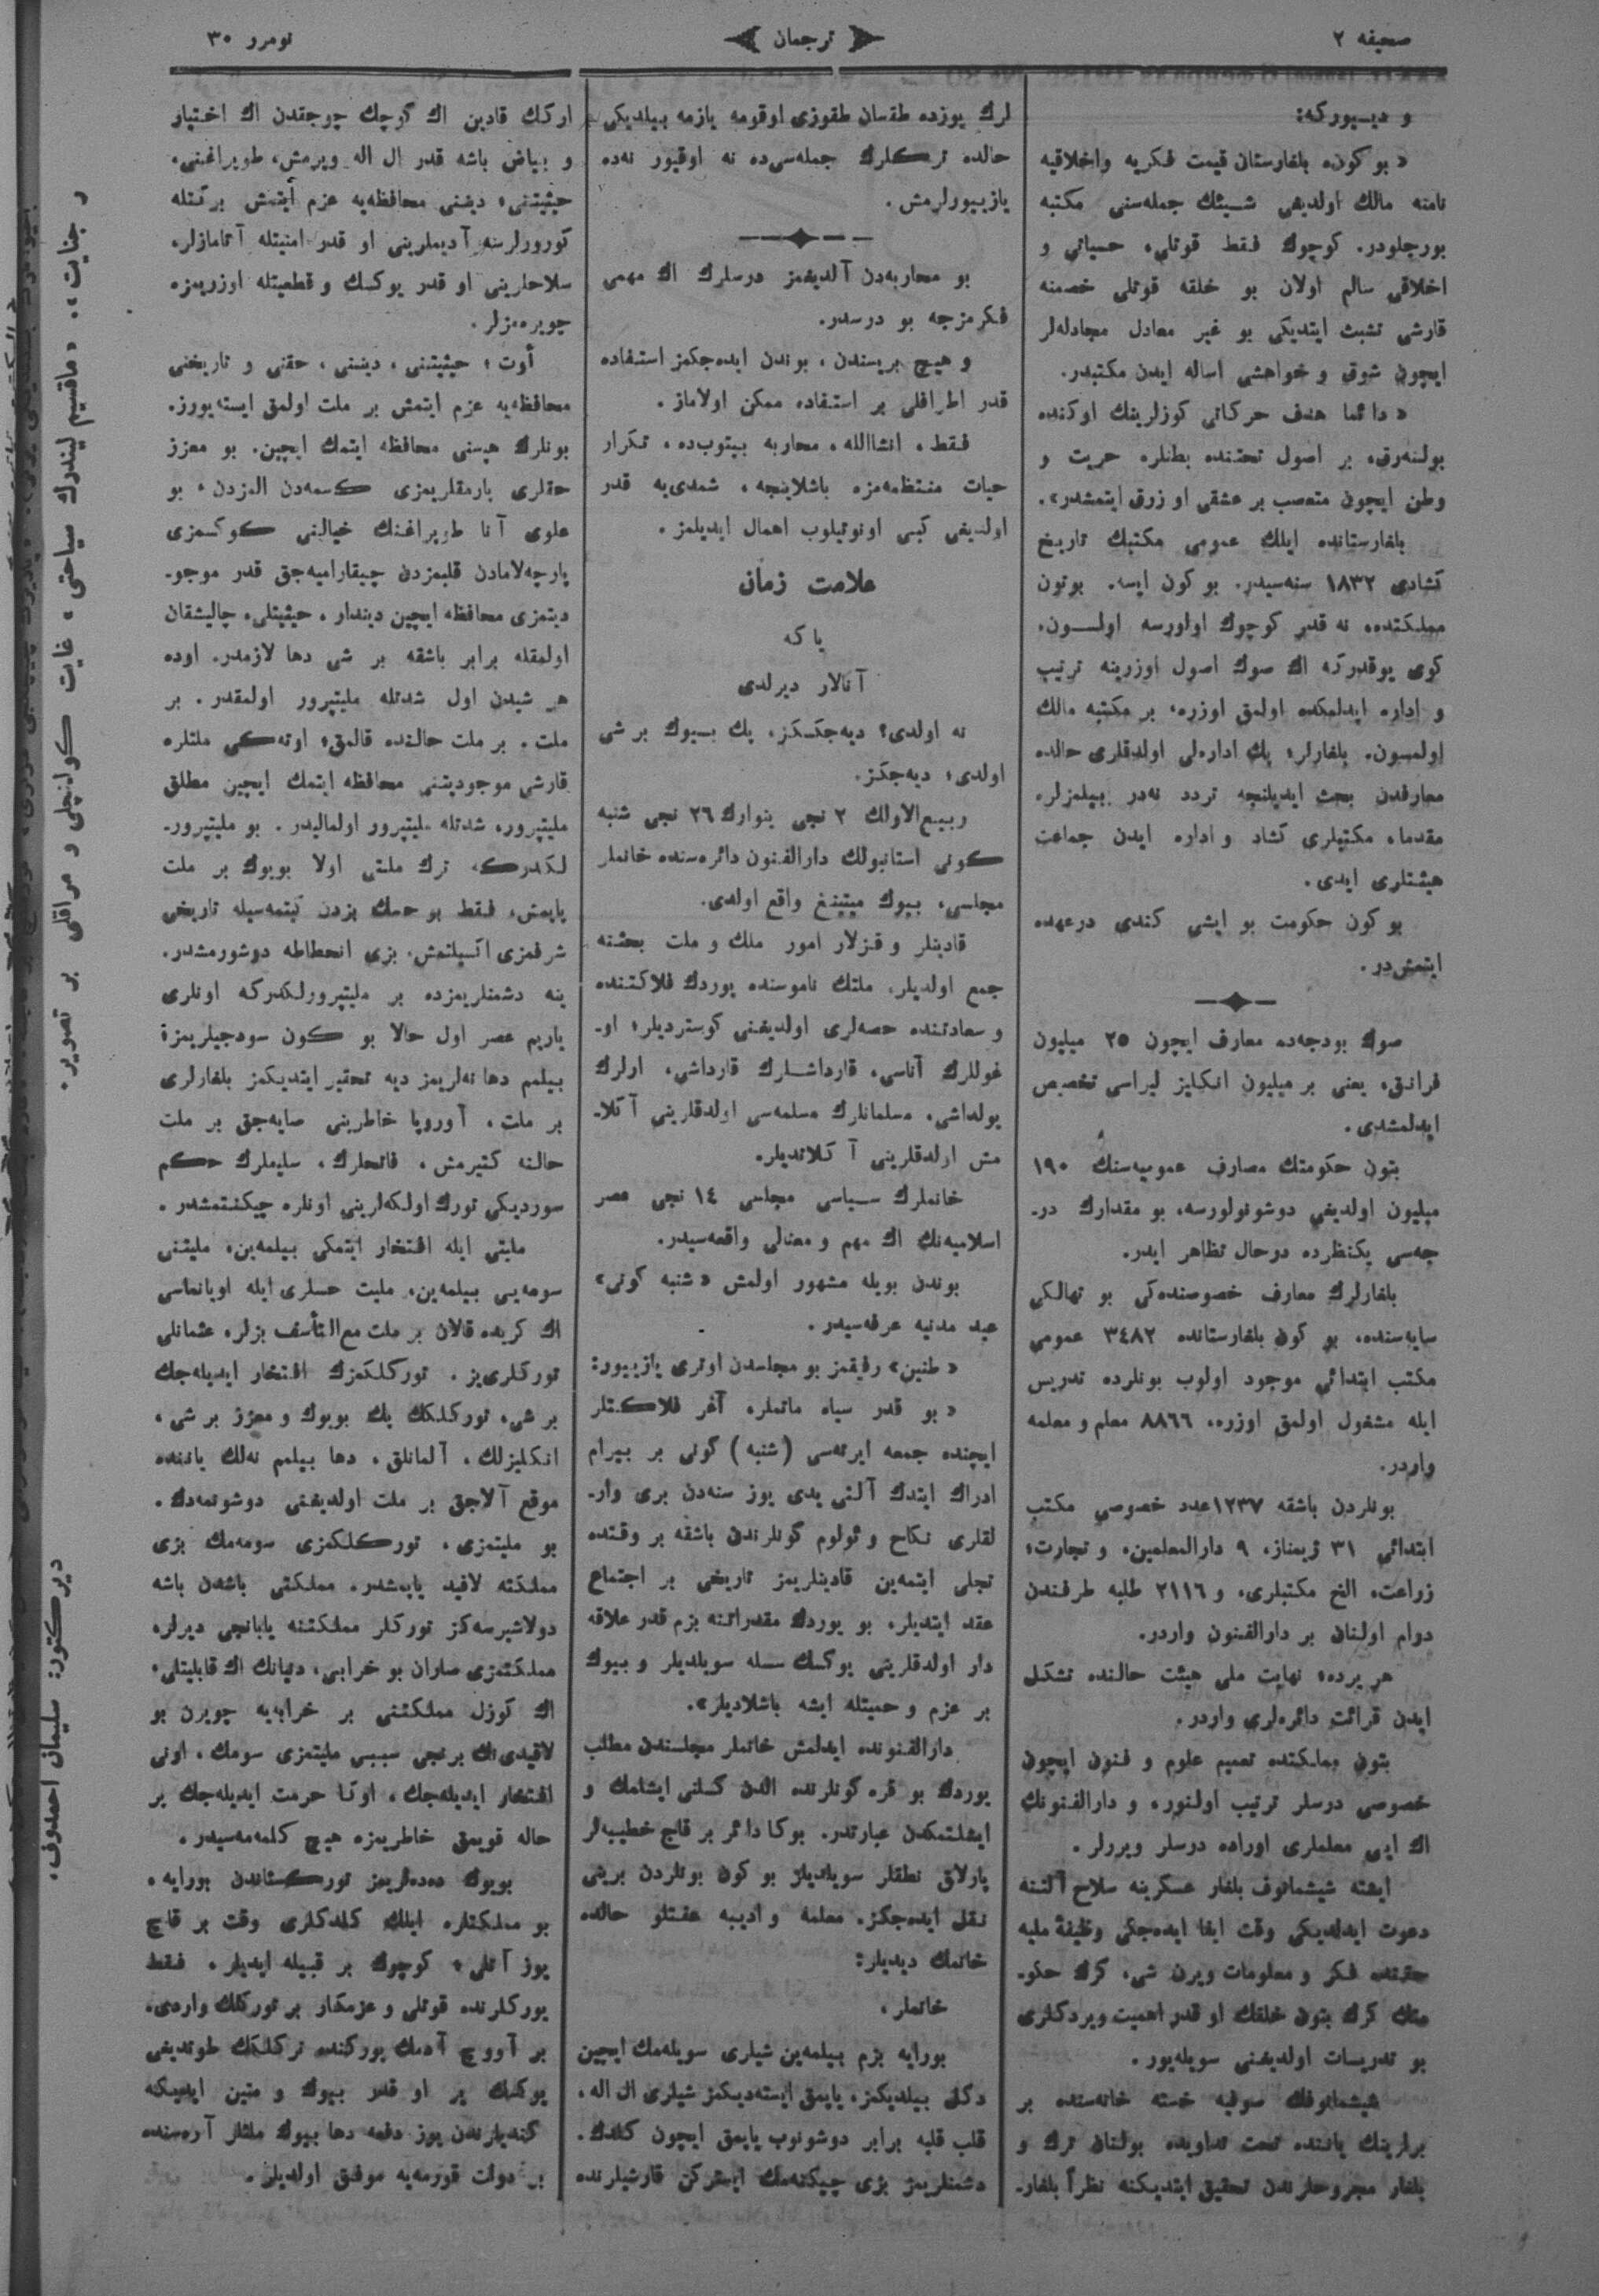 صحیفه ٢
ترجمان
نومرر ٣٠
و دیـیورکه:
« بو کون، بلغارستان قیمت فکریه واخلاقیه
نامنه مالك اولدیغی شـیئك جمله‌سنی مکتبه
بورجلودر. کوچوك فقط قوتلی، حسیاتی و
اخلاقی سالم اولان بو خلقه قوتلی خصمنه
قارشی تشبث ایتدیکی بو غیر معادل مجادله‌لر
ایچون شوق و خواهشی اساله ایدن مکتبدر.
« دائما هدف حرکاتی کوزلرینك اوکنده
بولنه‌رق، بر اصول تحتنده بطنلره حریت و
وطن ایچون متعصب بر عشقی او زرق ایتمشدر».
بلغارستانده ایلك عمومی مکتبك تاریخ
کشادی ١٨٣٢ سنه‌سیدر. بو کون ایسه. بوتون
مملکتده، نه قدر کوچوك اولورسه اولـسون،
کوی یوقدرکه اك صوك اصول اوزرینه ترتیب
و اداره ایدلمکده اولمق اوزره، بر مکتبه مالك
اولمسون. بلغارلر؛ پك اداره‌لی اولدقلری حالده
معارفدن بحث ایدیلنجه تردد نه‌در بیلمزلر.
مقدما، مکتبلری کشاد و اداره ایدن جماعت
هیئتلری ایدی.
بو کون حکومت بو ایشی کندی درعهده
ایتمش‌در.
صوك بودجه‌ده معارف ایچون ٢٥ میلیون
فرانق، یعنی بر میلیون انکلیز لیراسی تخصیص
ایدلمشدی.
بتون حکومتك مصارف عمومیه‌سنك ١٩٠
میلیون اولدیغی دوشونولورسه، بو مقدارك در-
جه‌سی یکنظرده درحال تظاهر ایدر.
بلغارلرك معارف خصوصنده‌کی بو تهالکی
سایه‌سنده، بو کون بلغارستانده ٣٤٨٢ عمومی
مکتب ابتدائی موجود اولوب بونلرده تدریس
ایله مشغول اولمق اوزره، ٨٨٦٦ معلم و معلمه
واردر.
بونلردن باشقه ١٢٣٧عدد خصوصی مکتب
ابتدائی ٣١ ژیمناز، ٩ دارالمعلمین، و تجارت،
زراعت، الخ مکتبلری، و ٢١١٦ طلبه طرفندن
دوام اولنان بر دارالفنون واردر.
هر یرده، نهایت ملی هیئت حالنده تشکل
ایدن قرائت دائره‌لری واردر.
بتون مملکتده تعمیم علوم و فنون ایچون
خصوصی درسلر ترتیب اولنور، و دارالفنونك
اك ایی معلملری اوراده درسلر ویررلر.
ایشته شیشمانوف بلغار عسکرینه سلاح آلتنه
دعوت ایدلدیکی وقت ایفا ایده‌جکی وظیفۀ ملیه
حقنده فکر و معلومات ویرن شی، کرك حکو-
متك کرك بتون خلقك او قدر اهمیت ویردکلری
بو تدریسات اولدیغنی سویله‌یور.
شیشمانوفك صوفیه خسته خانه‌سنده بر
برلرینك یاننده تحت تداویده بولنان ترك و
بلغار مجروحلرندن تحقیق ایتدیکنه نظراً بلغار-
لرك یوزده طقسان طقوزی اوقومه یازمه بیلدیکی
حالده ترـکلرك جمله‌سی‌ده نه اوقیور نه‌ده
یازییورلرمش.
بو محاربه‌دن آلدیغمز درسلرك اك مهمی
فکرمزجه بو درسدر.
و هیچ بریسندن، بوندن ایده‌جکمز استفاده
قدر اطرافلی بر استفاده ممکن اولاماز.
فقط، انشاالله، محاربه بیتوب‌ده، تکرار
حیات منتظمه‌مزه باشلاینجه، شمدی‌یه قدر
اولدیغی کبی اونوتیلوب اهمال ایدیلمز.
علامت زمان
یا که
آنالار دیرلدی
نه اولدی؟ دیه‌جکـکز، پك بـیوك بر شی
اولدی؛ دیه‌جکز.
ربیع‌الاولك ٢ نجی ینوارك ٢٦ نجی شنبه
کونی استانبولك دارالفنون دائره‌سنده خانملر
مجلسی، بیوك میتینغ واقع اولدی.
قادینلر و قزلار امور ملك و ملت بحثنه
جمع اولدیلر، ملتك ناموسنده یوردك فلاکتنده
و سعادتنده حصه‌لری اولدیغنی کوستردیلر؛ او-
غوللرك آناسی، قارداشلرك قارداشی، ارلرك
یولداشی، مسلمانلرك مسلمه‌سی اولدقلرینی آکلا-
مش اولدقلرینی آکلاتدیلر.
خانملرك سـیاسی مجلسی ١٤ نجی عصر
اسلامیه‌نك اك مهم و معنالی واقعه‌سیدر.
بوندن بویله مشهور اولمش «شنبه کونی»
عید مدنیه عرفه‌سیدر.
«طنین» رفیقمز بو مجلسدن اوتری یازییور:
« بو قدر سیاه ماتملر، آغر فلاـکتلر
ایچنده جمعه ایرته‌سی (شنبه) کونی بر بیرام
ادراك ایتدك آلتی یدی یوز سنه‌دن بری وار-
لقلری نکاح و ئولوم کونلرندن باشقه بر وقتده
تجلی ایتمه‌ین قادینلریمز تاریخی بر اجتماع
عقد ایتدیلر، بو یوردك مقدراتنه بزم قدر علاقه
دار اولدقلرینی یوکسك سـله سویلدیلر و بیوك
بر عزم و حمیتله ایشه باشلادیلر».
دارالفنونده ایدلمش خانملر مجلسندن مطلب
یوردك بو قره کونلرنده الدن کـلنی ایشلمك و
ایشلتمکدن عبارتدر. بوکا دائر بر قاچ خطیبه‌لر
پارلاق نطقلر سویلدیلر بو کون بونلردن برینی
نقل ایده‌جکز. معلمه و ادیبه عفتلو حالده
خانمك دیدیلر:
خانملر،
بورایه بزم بیلمه‌ین شیلری سویلمك ایچین
دکل بیلدیکز، یایمق ایسته‌دیکمز شیلری ال اله،
قلب قلبه برابر دوشونوب یایمق ایچون کلدك.
دشمنلریمز بزی چیکنه‌مك ایسترکن قارشیلرنده
ارکك قادین اك کوچك چوجقدن اك اختیار
و بیاض باشه قدر ال اله ویرمش، طوپراغنی،
حیثیتنی، دیننی محافظه‌یه عزم ایتمش بر کتله
کورورلرسه آدیملرینی او قدر امنیتله آتامازلر،
سلاحلرینی او قدر یوکسك و قطعیتله اوزریمزه
چویره‌مزلر.
أوت؛ حیثیتنی، دیننی، حقنی و تاریخنی
محافظه‌یه عزم ایتمش بر ملت اولمق ایسته‌یورز.
بونلرك هپسنی محافظه ایتمك ایچین. بو معزز
حقلری یارمقلریمزی کسمه‌دن المزدن، بو
علوی آنا طوپراغنك خیالنی کوکسمزی
پارچه‌لامادن قلبمزدن چیقارامیه‌جق قدر موجو-
دیتمزی محافظه ایچین دیندار، حیثیتلی، چالیشقان
اولمقله برابر باشقه بر شی دها لازمدر. اوده
هر شیدن اول شدتله ملیتپرور اولمقدر. بر
ملت، بر ملت حالنده قالمق؛ اوته‌کی ملتلره
قارشی موجودیتنی محافظه ایتمك ایچین مطلق
ملیتپرور، شدتله ملیتپرور اولمالیدر. بو ملیتپرور-
لکدرکه ترك ملتی اولا بویوك بر ملت
یاپمش، فقط بو حسك بزدن کیتمه‌سیله تاریخی
شرفمزی اکسیلتمش، بزی انحطاطه دوشورمشدر.
ینه دشمنلریمزده بر ملیتپرورلکدرکه اونلری
یاریم عصر اول حالا بو کون سودجیلریمز؛
بیلمم دها نه‌لریمز دیه تحقیر ایتدیکمز بلغارلری
بر ملت، آوروپا خاطرینی صایه‌جق بر ملت
حالنه کتیرمش، فاتحلرك، سلیملرك حکم
سوردیکی تورك اولکه‌لرینی اونلره چیکنتمشدر.
ملیتی ایله افتخار ایتمکی بیلمه‌ین، ملیتنی
سومه‌یی بیلمه‌ین، ملیت حسلری ایله اویانماسی
اك کریده قالان بر ملت مع‌التأسف بزلره عثمانلی
تورکلری‌یز. تورکلکمزك افتخار ایدیله‌جك
بر شی، تورکلکك پك بویوك و معزز بر شی،
انکلیزلك، آلمانلق، دها بیلمم نه‌لك یاننده
موقع آلاجق بر ملت اولدیغنی دوشونمه‌دك.
بو ملیتمزی، تورـکلکمزی سومه‌مك بزی
مملکته لاقید یاپمشدر. مملکتی باشدن باشه
دولاشیرسه‌کز تورکلر مملکتنه یابانجی دیرلر،
مملکتمزی صاران بو خرابی، دنیانك اك قابلیتلی،
اك کوزل مملکتنی بر خرابه‌یه چویرن بو
لاقیدی‌نك برنجی سببی ملیتمزی سومك، اونی
افتخار ایدیله‌جك، اوکا حرمت ایدیله‌جك بر
حاله قویمق خاطریمزه هیچ کلمه‌مه‌سیدر.
بویوك دده‌لریمز تورـکستاندن بورایه،
بو مملکتلره ایلك کلدکلری وقت بر قاچ
یوز آتلی، کوچوك بر قبیله ایدیلر. فقط
یورکلرنده قوتلی و عزمکار بر تورکلك واردی.
بر آووچ آدمك یورکنده ترکلکك طوتدیغی
یوکسك یر او قدر بیوك و متین ایدیکه
کندیلرندن یوز دفعه دها بیوك ملتلر آره‌سنده
بر دولت قورمه‌یه موفق اولدیلر.
و جنایت». «ماقسیم لیندرك سیاحتی، غایت کولنجلی و مراقلی بر تصویر.
دیرکتور: سلیمان احمدوف.